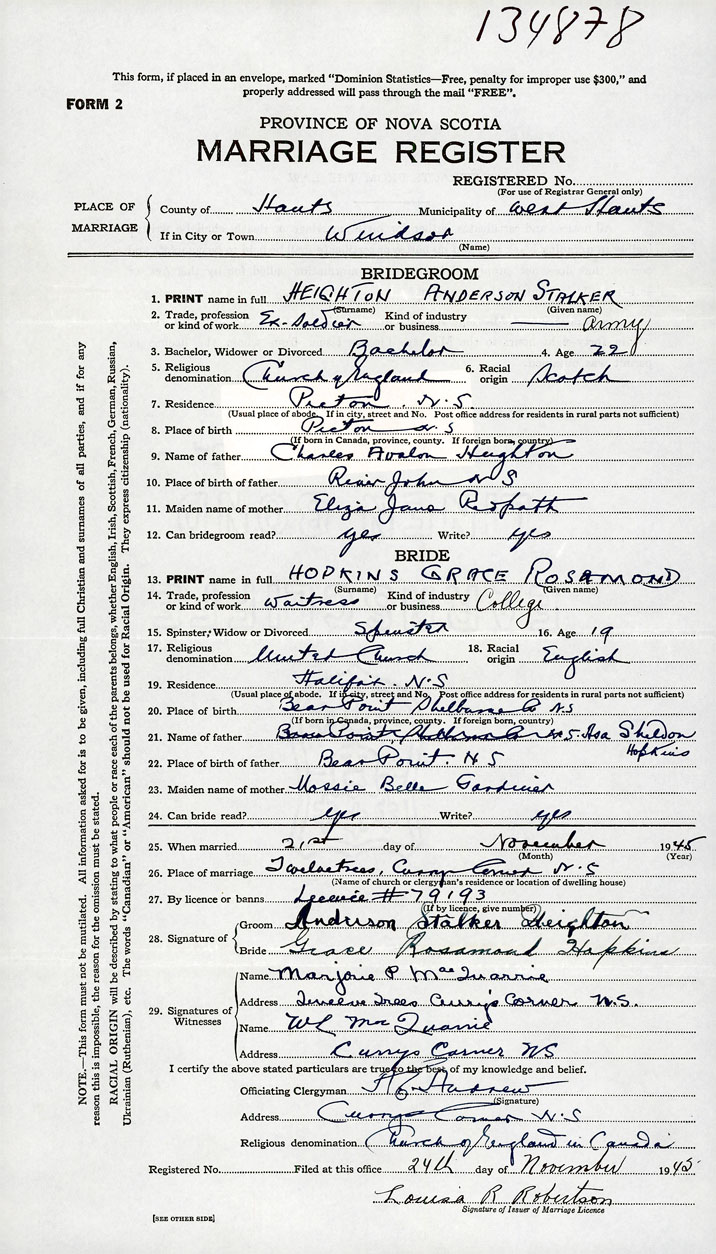 134878
This form, if placed in an envelope, marked "Dominion Statistics—Free, penalty for improper use $300," and
properly addressed will pass through the mail "FREE".
FORM 2
PROVINCE OF NOVA SCOTIA
MARRIAGE REGISTER
REGISTERED No.
(For use of Registrar General only)
PLACE OF MARRIAGE
County of Hants Municipality of West Hants
If in City or Town Windsor
(Name)
BRIDEGROOM
1. PRINT name in full HEIGHTON ANDERSON STALKER
(Surname) (Given name)
2. Trade, profession or kind of work Ex-Soldier Kind of industry or business — army
3. Bachelor, Widower or Divorced Bachelor 4. Age 22
5. Religious denomination Church of England 6. Racial origin Scotch
7. Residence Pictou N.S.
(Usual place of abode. If in city, street and No. Post office address for residents in rural parts not sufficient)
8. Place of birth Pictou N.S
(If born in Canada, province, county. If foreign born, country)
9. Name of father Charles Avalon Heighton
10. Place of birth of father River John N S
11. Maiden name of mother Eliza Jane Redpath
12. Can bridegroom read? yes Write? yes
BRIDE
13. PRINT name in full HOPKINS GRACE ROSAMOND
(Surname) (Given name)
14. Trade, profession or kind of work Waitress Kind of industry or business College
15. Spinster, Widow or Divorced Spinster 16. Age 19
17. Religious denomination United Church 18. Racial origin English
19. Residence Halifax N.S
(Usual place of abode. If in city, street and No. Post office address for residents in rural parts not sufficient)
20. Place of birth Bear Point Shelburne Co N.S
(If born in Canada, province, county. If foreign born, country)
21. Name of father Bear Point Shelburne Co N.S. Asa Sheldon
Hopkins
22. Place of birth of father Bear Point. N S
23. Maiden name of mother Mossie Belle Gardiner
24. Can bride read? yes Write? yes
25. When married 21st day of November 1945
(Month) (Year)
26. Place of marriage Twelvetrees, Curry's Corner N.S
(Name of church or clergyman's residence or location of dwelling house)
27. By licence or banns Licence # 79193
(If by licence, give number)
28. Signature of
Groom Anderson Stalker Heighton
Bride Grace Rosamond Hopkins
29. Signatures of Witnesses
Name Marjorie P MacQuarrie
Address Twelve Trees Curry's Corner N.S.
Name W L MacQuarrie
Address Currys Corner NS
I certify the above stated particulars are true to the best of my knowledge and belief.
Officiating Clergyman Andrew
(Signature)
Address Currys Corner N.S
Religious denomination Church of England in Canada
Registered No. Filed at this office 24th day of November 1945
Louisa R Robertson
Signature of Issuer of Marriage Licence
[SEE OTHER SIDE]
NOTE.—This form must not be mutilated. All information asked for is to be given, including full Christian and surnames of all parties, and if for any
reason this is impossible, the reason for the omission must be stated.
RACIAL ORIGIN will be described by stating to what people or race each of the parents belongs, whether English, Irish, Scottish, French, German, Russian,
Ukrainian (Ruthenian), etc. The words "Canadian" or "American" should not be used for Racial Origin. They express citizenship (nationality).